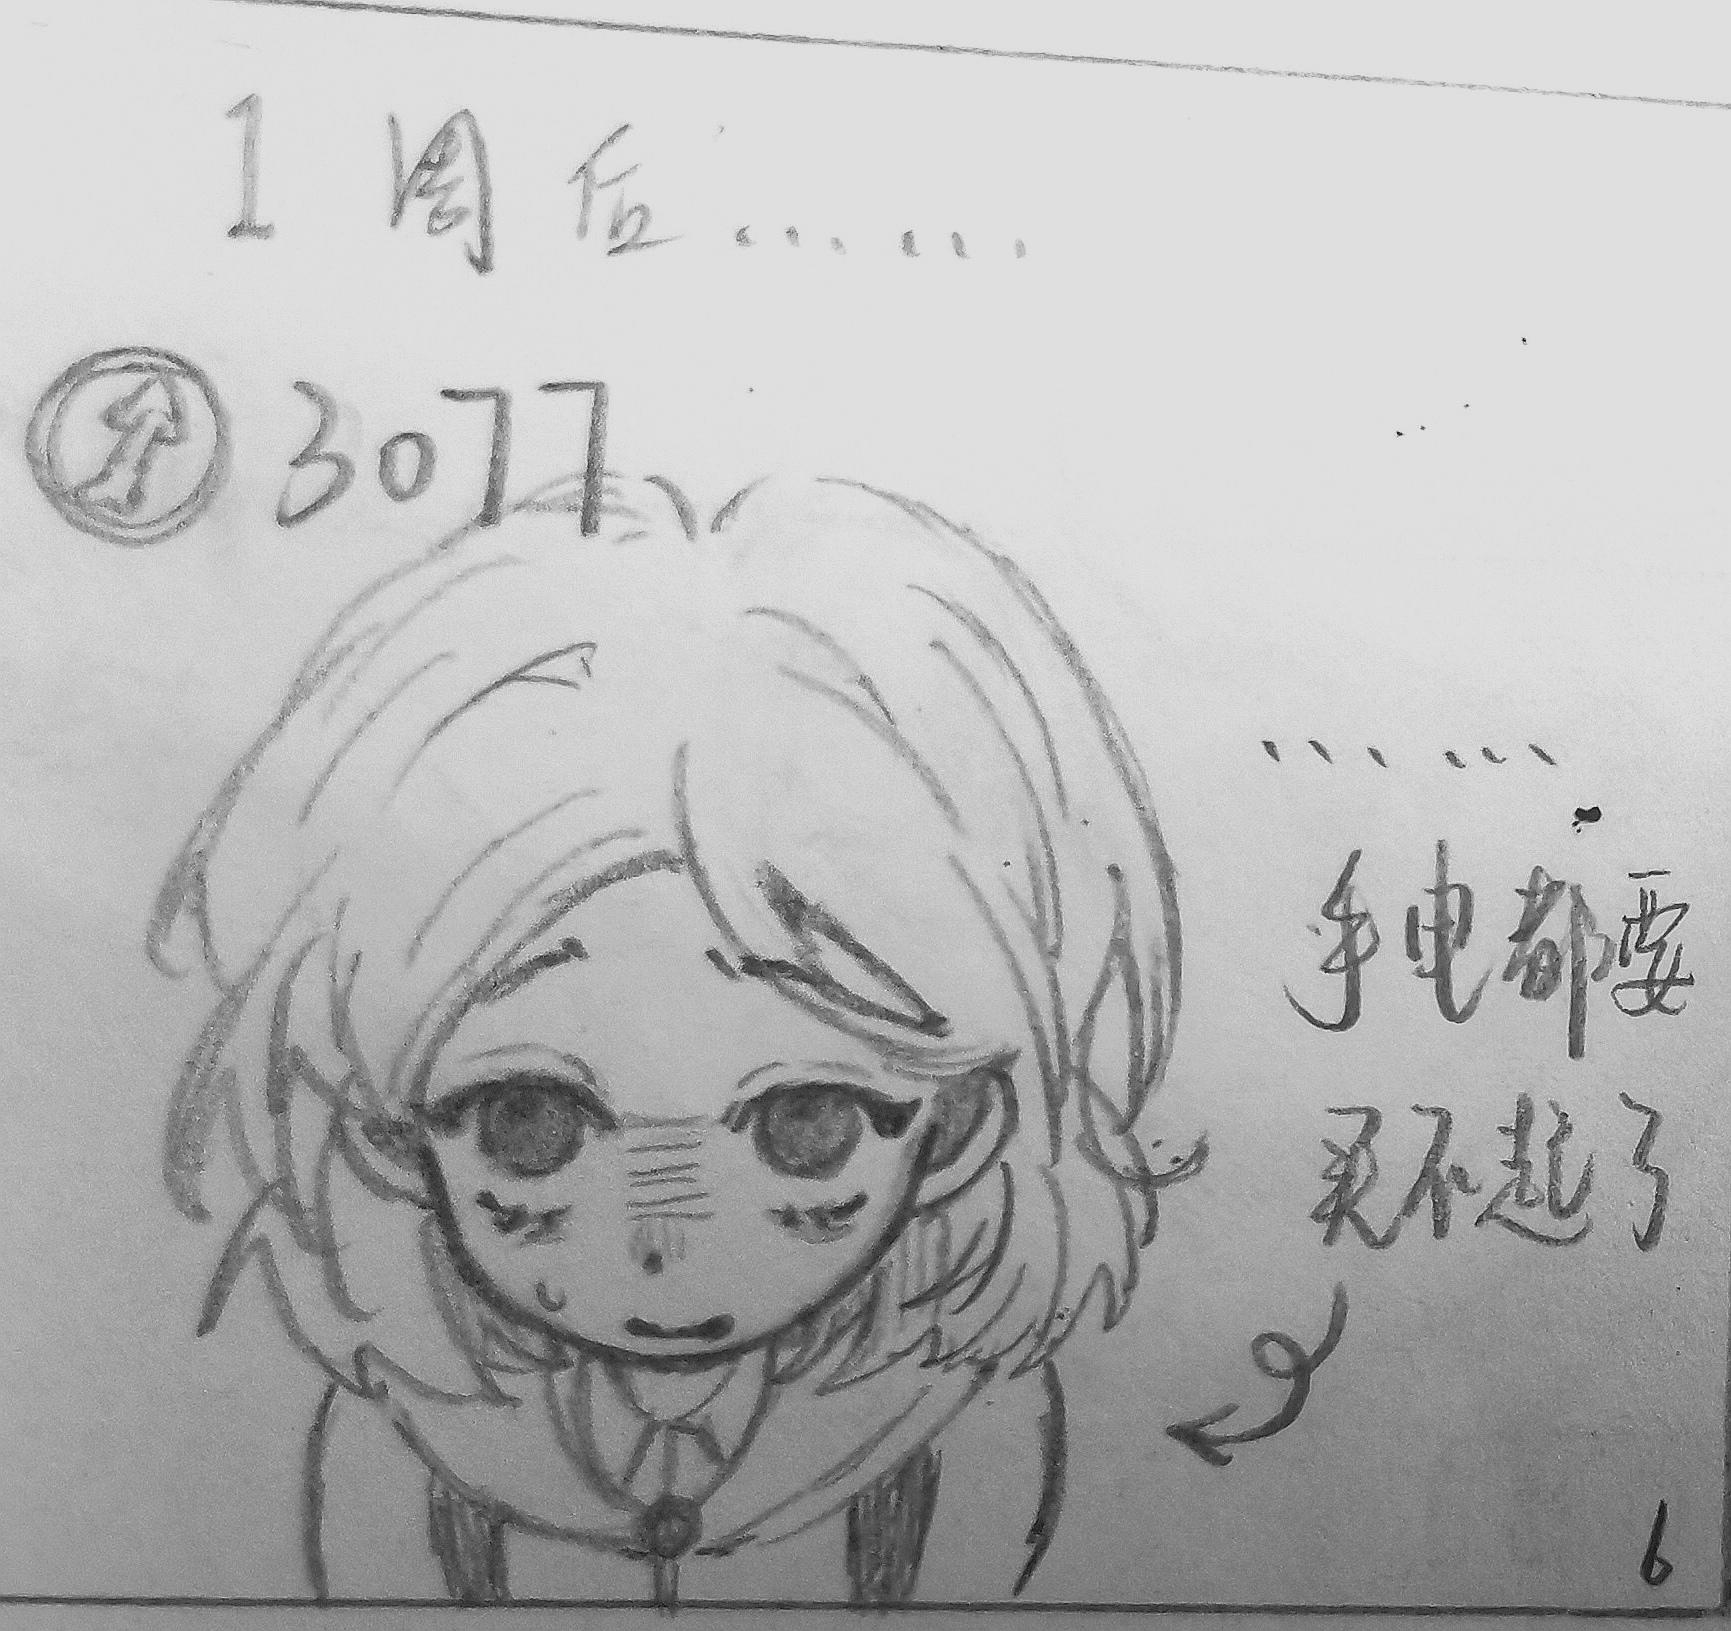 1周后……
3077
……
手电都要
买不起了
6